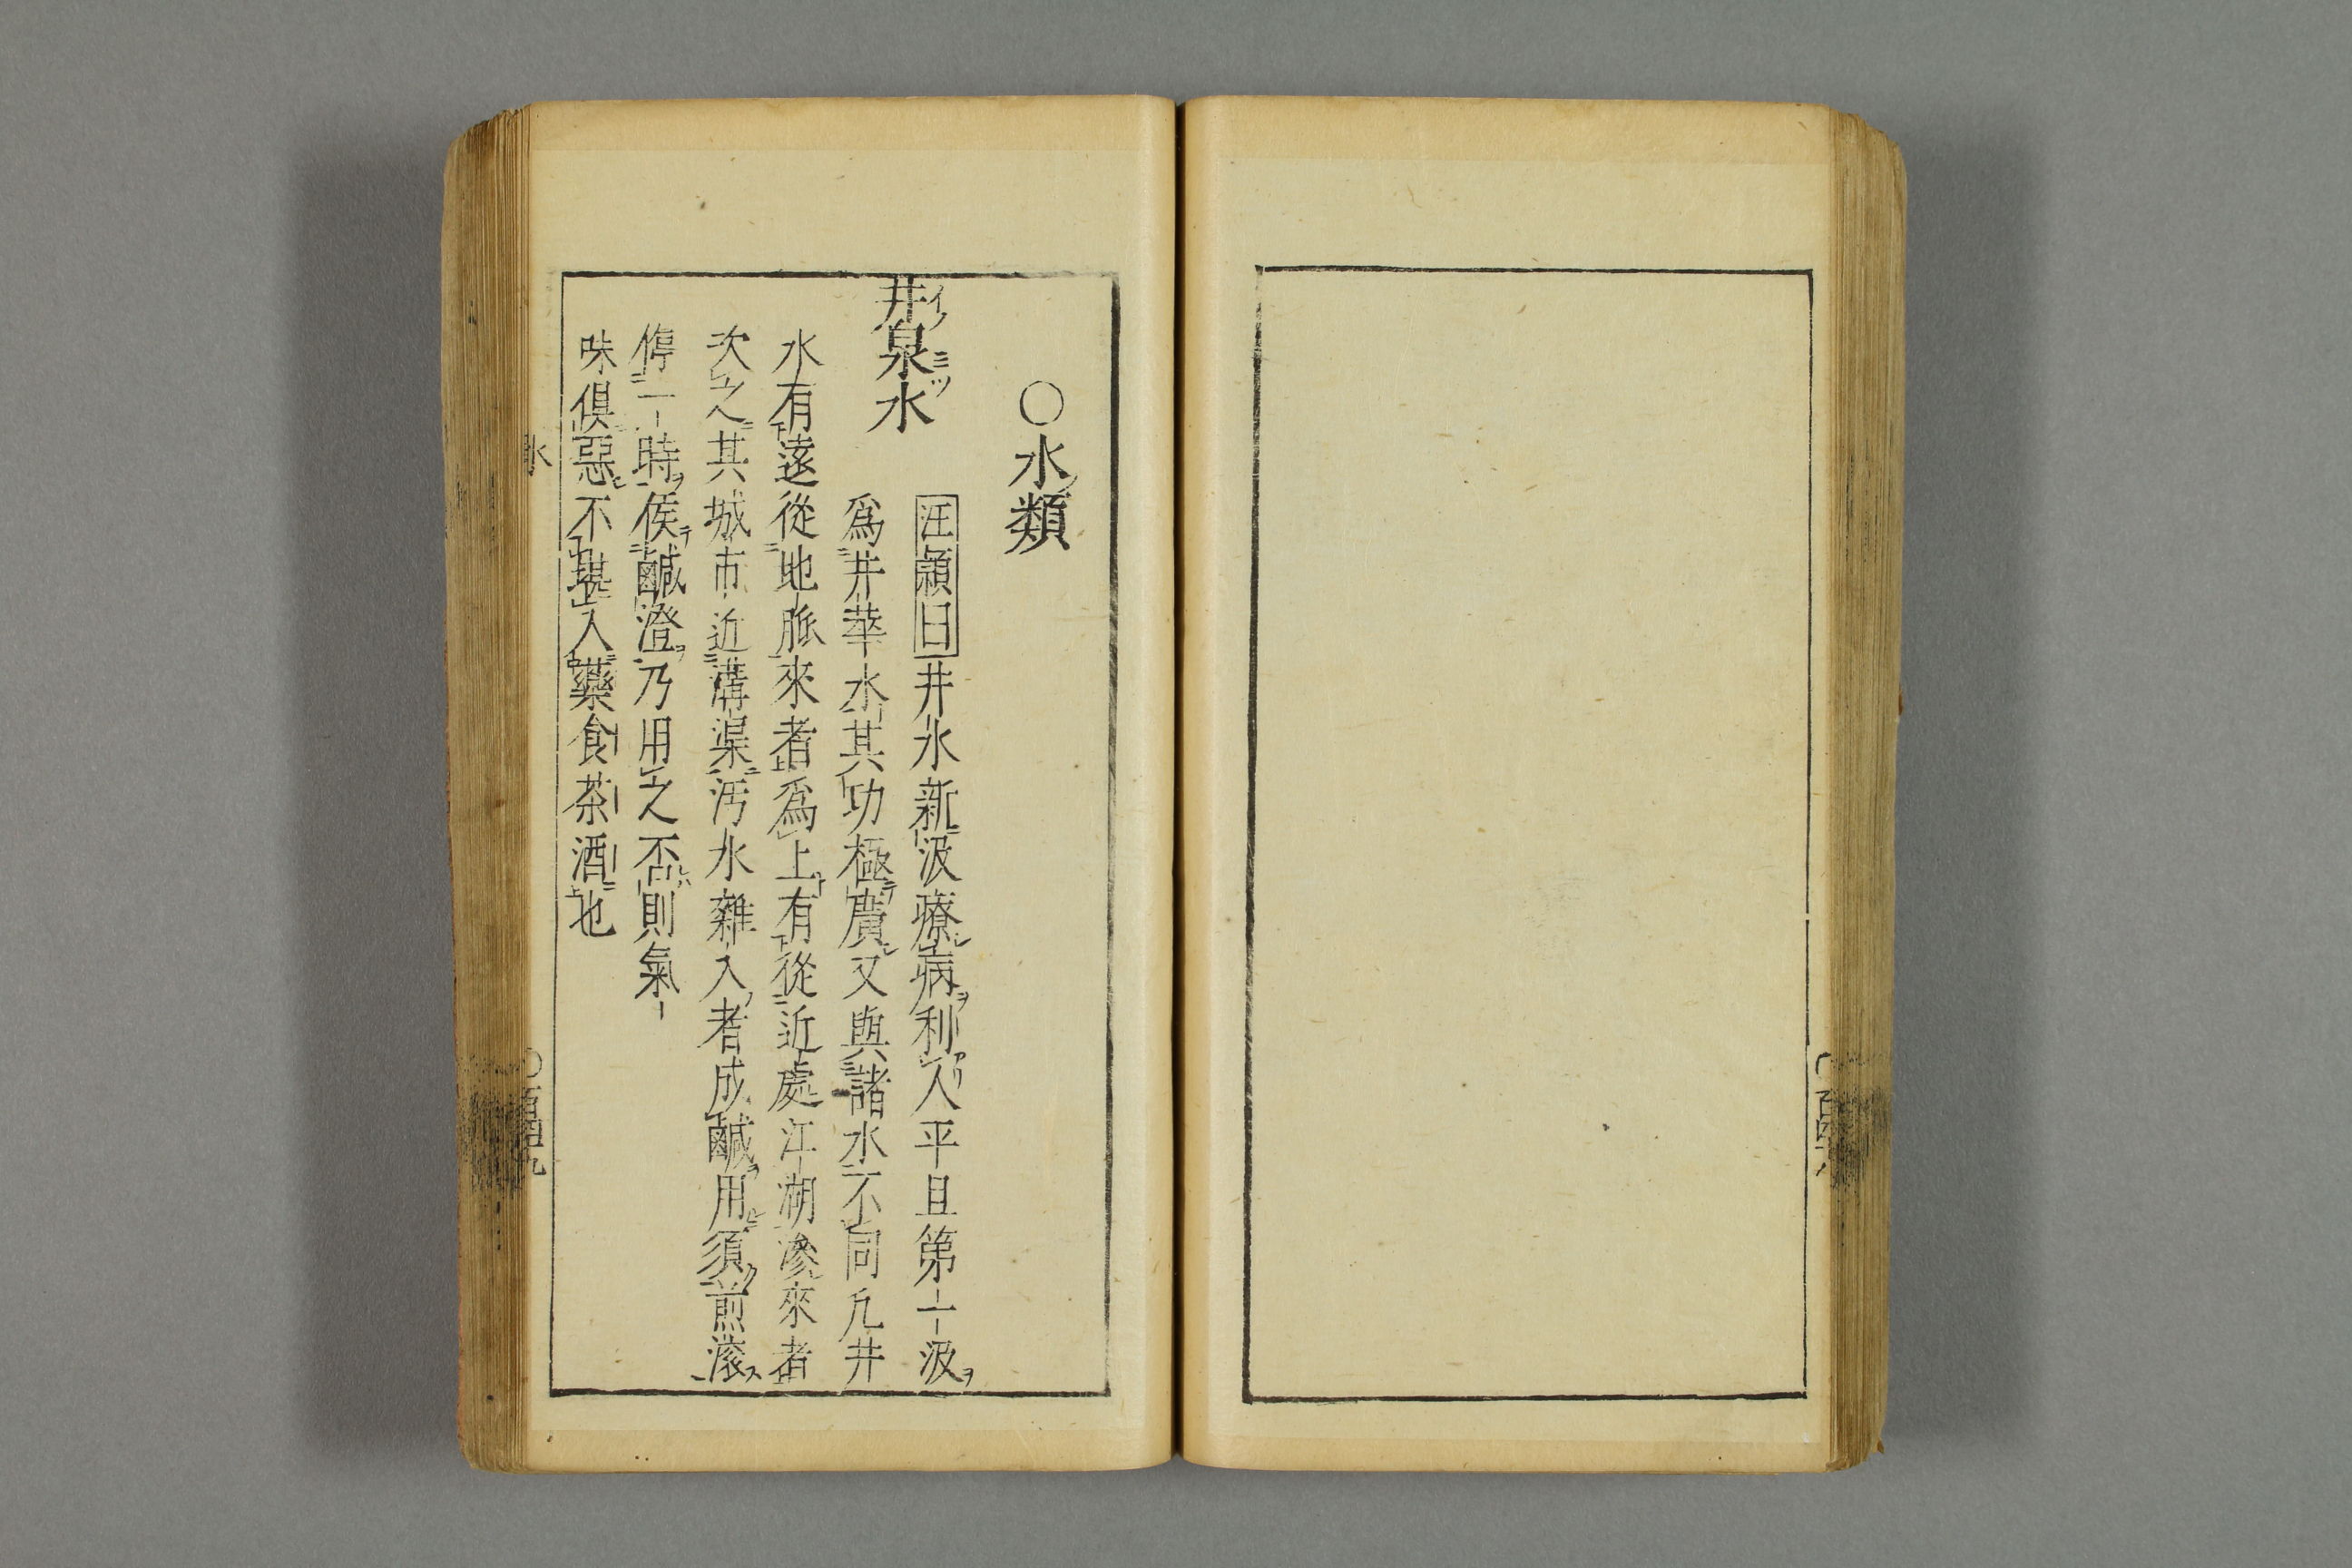 〇水類
井泉水
汪頴曰井水新汲療病利人平旦第一汲
為井華水其功極廣又與諸水不同凢井
水有遠從地脈來者為上有從近處江湖滲來者
次之其城市近溝渠汚水雜入者成鹹用須煎滾
停一時候鹹澄乃用之否則氣
味俱惡不堪入藥食茶酒也
水
〇百四十九